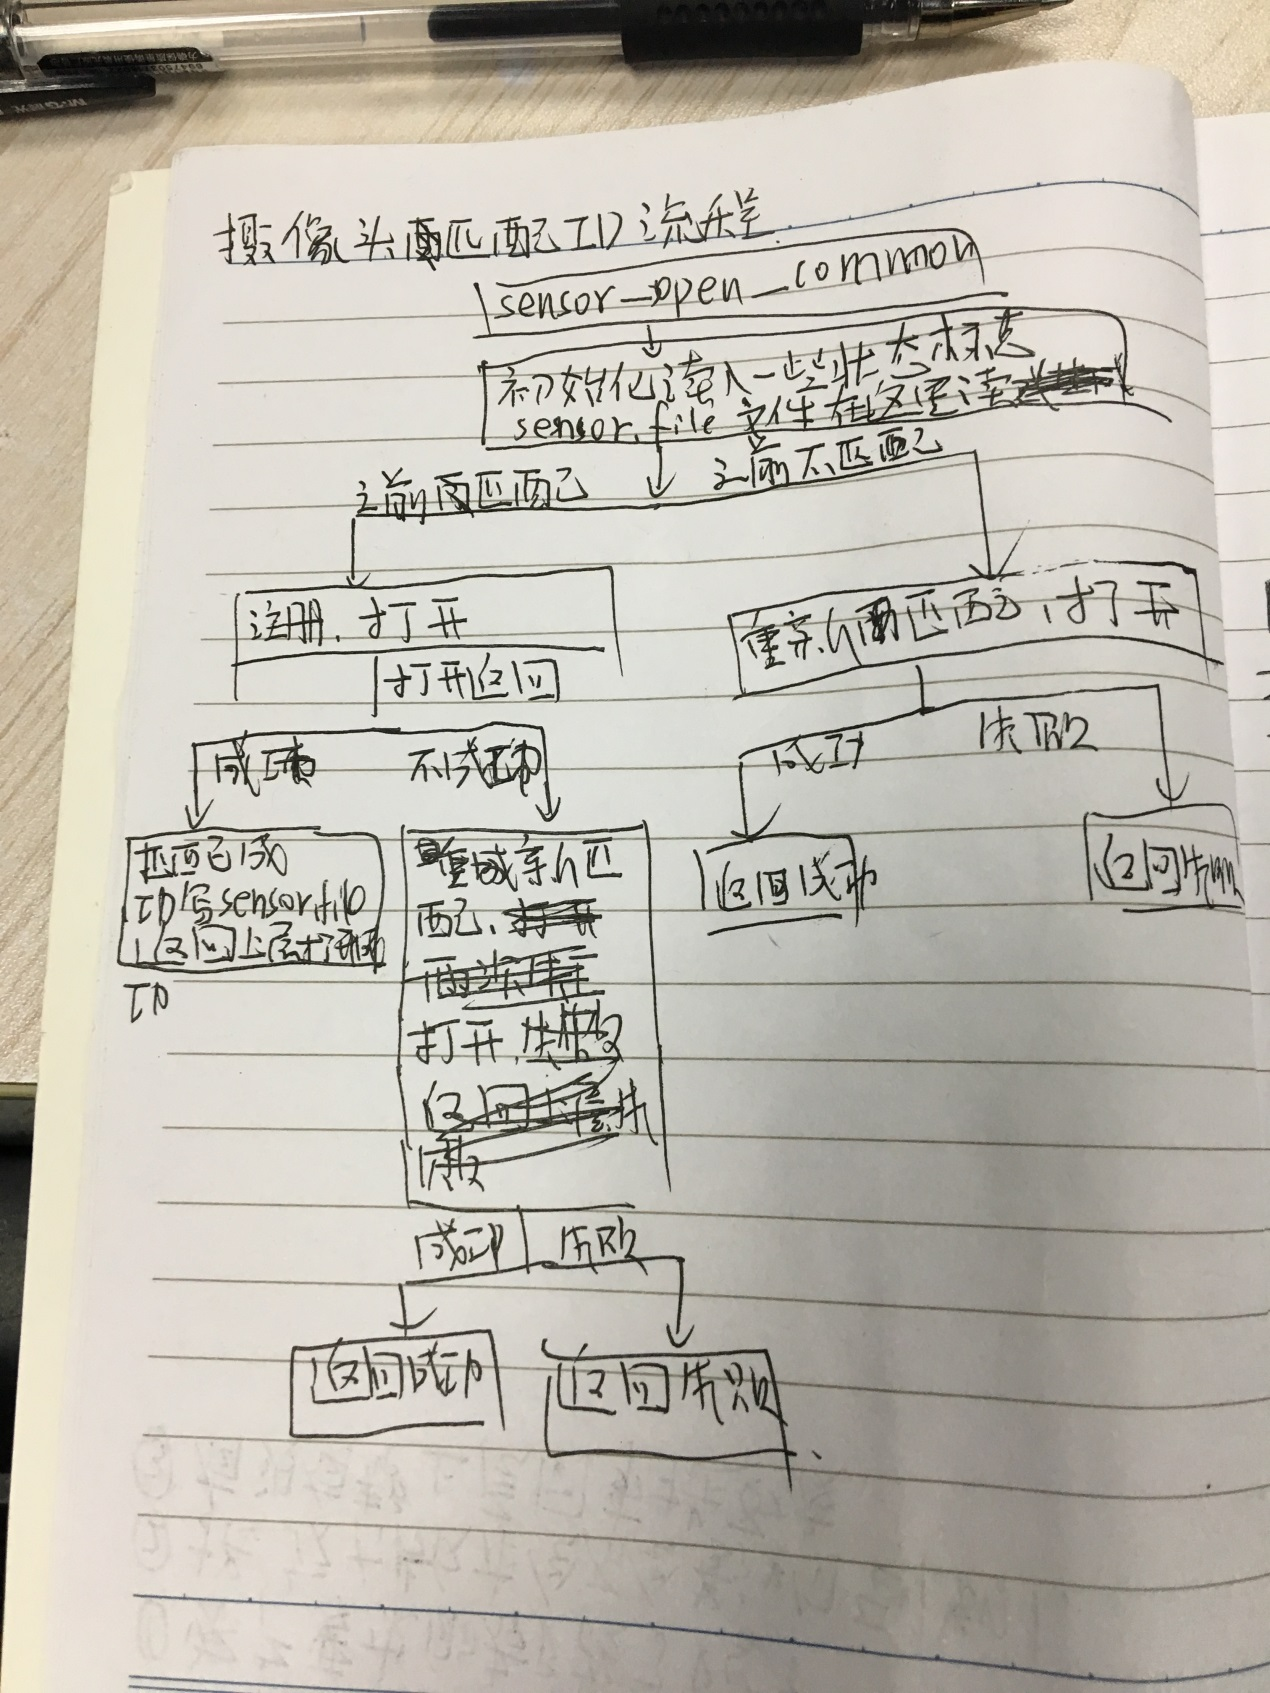 摄像头匹配ID流程
sensor_open_common
初始化读入一些状态标志
sensor.file文件在这里读
之前匹配
之前不匹配
注册、打开
重新匹配、打开
打开返回
成功
不成功
成功
失败
匹配成
功写sensor.file
返回上层打开成
功
重新匹
配、
打开
返回成功
返回失败
成功
失败
返回成功
返回失败